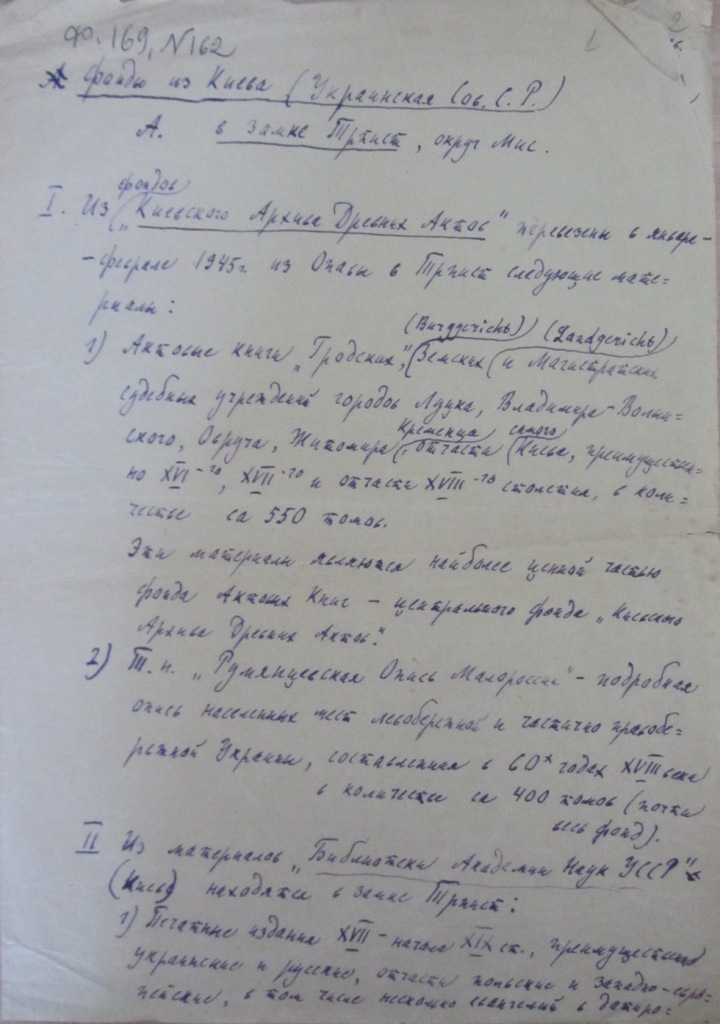 ф. 169, №162
2
Фонды из Киева (Украинская Сов. С. Р.)
А. в замке Трпист, округ Мис.
фондов
I. Из „Киевского Архива Древних Актов" перевезены в январе-
-феврале 1945г. из Опавы в Трпист следующие мате=
риалы:
(Burggericht) (Landgericht)
1) Актовые книги „Гродских", Земских и Магистратских
судебных учреждений городов Луцка, Владимира-Волын=
Кременца самого
ского, Овруча, Житомира, отчасти Киева, преимуществен-
но XVI-го, XVII-го и отчасти XVIII-го столетия, в коли=
честве ca 550 томов.
Эти материалы являются наиболее ценной частью
фонда Актовых Книг – центрального фонда „Киевского
Архива Древних Актов".
2) Т. н. „Румянцевская Опись Малороссии" – подробная
опись населенных мест левобережной и частично правобе=
режной Украины, составленная в 60х годах XVIII века
в количестве ca 400 томов (почти
весь фонд).
II Из материалов „Библиотеки Академии Наук УССР"
(Киев) находятся в замке Трпист:
1) Печатные издания XVII – начала XIX ст., преимущественно
украинские и русские, отчасти польские и западно-евро=
пейские, в том числе несколько евангелий в датиро=